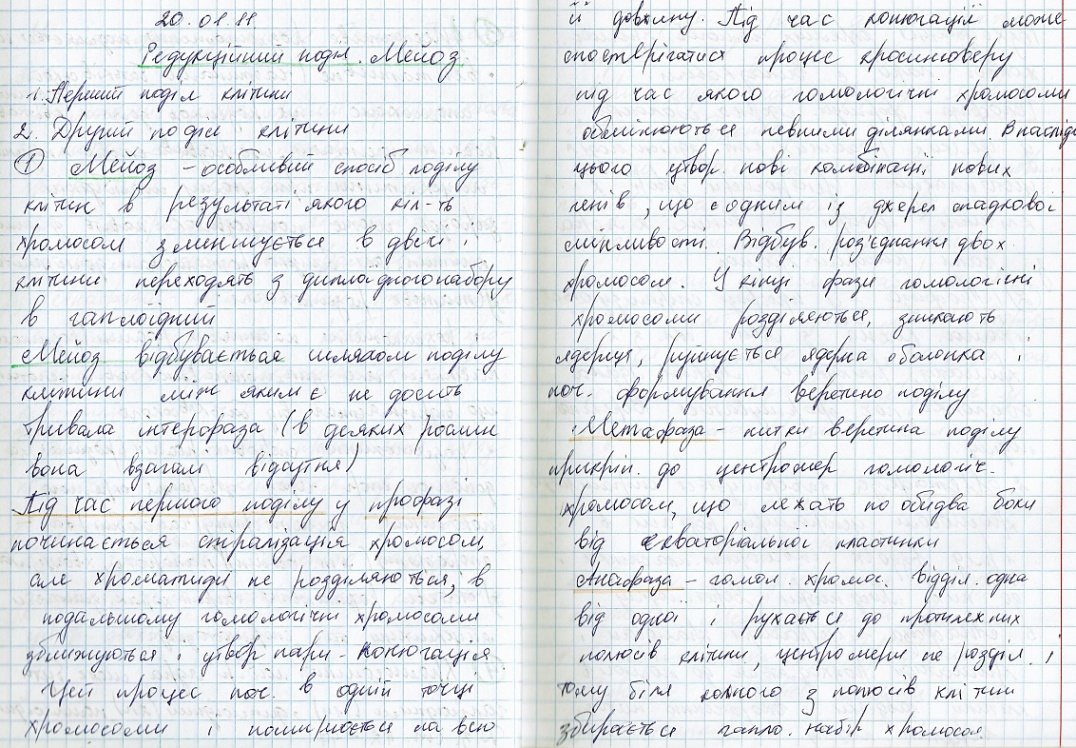 20.01.11
Редукційний поділ. Мейоз
1. Перший поділ клітини
2. Другий поділ клітини
① Мейоз – особливий спосіб поділу
клітин в результаті якого кіл-ть
хромосом зменшується в двічі і
клітини переходять з диплоїдного набору
в гаплоїдний
Мейоз відбувається шляхом поділу
клітини між яким є не досить
тривала інтерфаза (в деяких рослин
вона взагалі відсутня)
Під час першого поділу у профазі
починається спіралізація хромосом,
але хроматиди не розділяються, в
подальшому гомологічні хромосоми
зближуються і утвор пари – конюгація
Цей процес поч. в одній точці
хромосоми і поширюється на всю
її довжину. Під час конюгації може
спостерігатися процес кросинговеру
під час якого гомологічні хромосоми
обмінюються певними ділянками. Внаслідо
цього утвор. нові комбінації нових
генів, що є одним із джерел спадкової
мінливості. Відбув. роз'єднання двох
хромосом. У кінці фази гомологічні
хромосоми розділяються, зникають
ядерця, руйнується ядерна оболонка і
поч. формування веретено поділу
Метафаза – нитки веретина поділу
прикріп. до центромер гомологіч.
хромосом, що лежать по обидва боки
від екваторіальної пластинки
Анафаза – гомол. хромос. відділ. одна
від одної і рухається до протилежних
полюсів клітини, центромери не розділ. і
тому біля кожного з полюсів клітин
збирається гапло. набір хромосом.